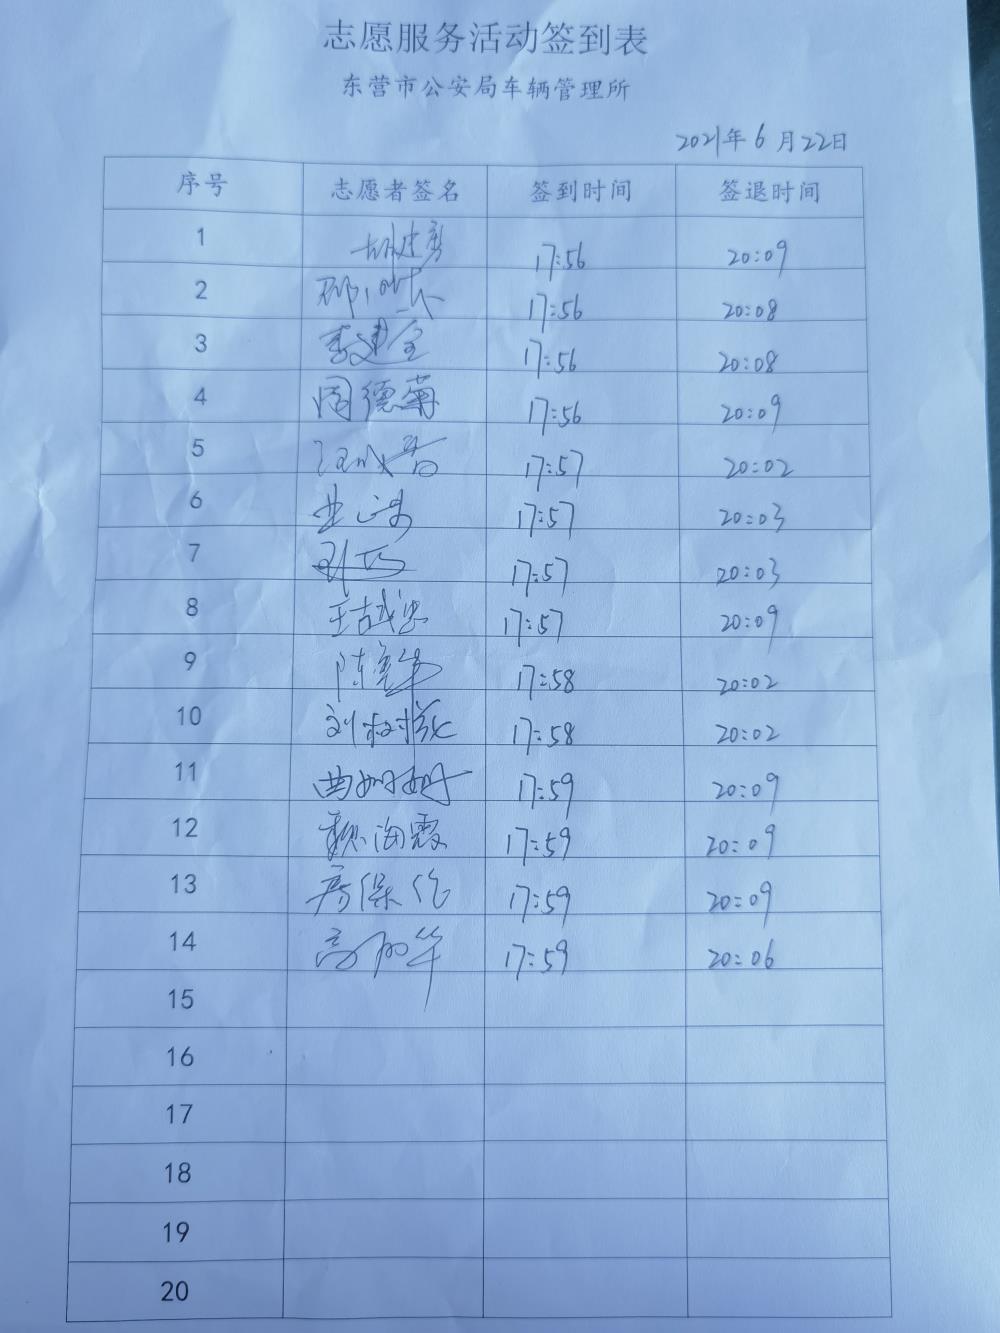 志愿服务活动签到表
东营市公安局车辆管理所
2021年6月22日
序号 志愿者签名 签到时间 签退时间
1 胡建勇 17:56 20:09
2 17:56 20:08
3 李建全 17:56 20:08
4 周德菊 17:56 20:09
5 17:57 20:02
6 17:57 20:03
7 17:57 20:03
8 王喆忠 17:57 20:09
9 陈 17:58 20:02
10 刘树 17:58 20:02
11 曲姗姗 17:59 20:09
12 魏海霞 17:59 20:09
13 房保 17:59 20:09
14 高 17:59 20:06
15
16
17
18
19
20